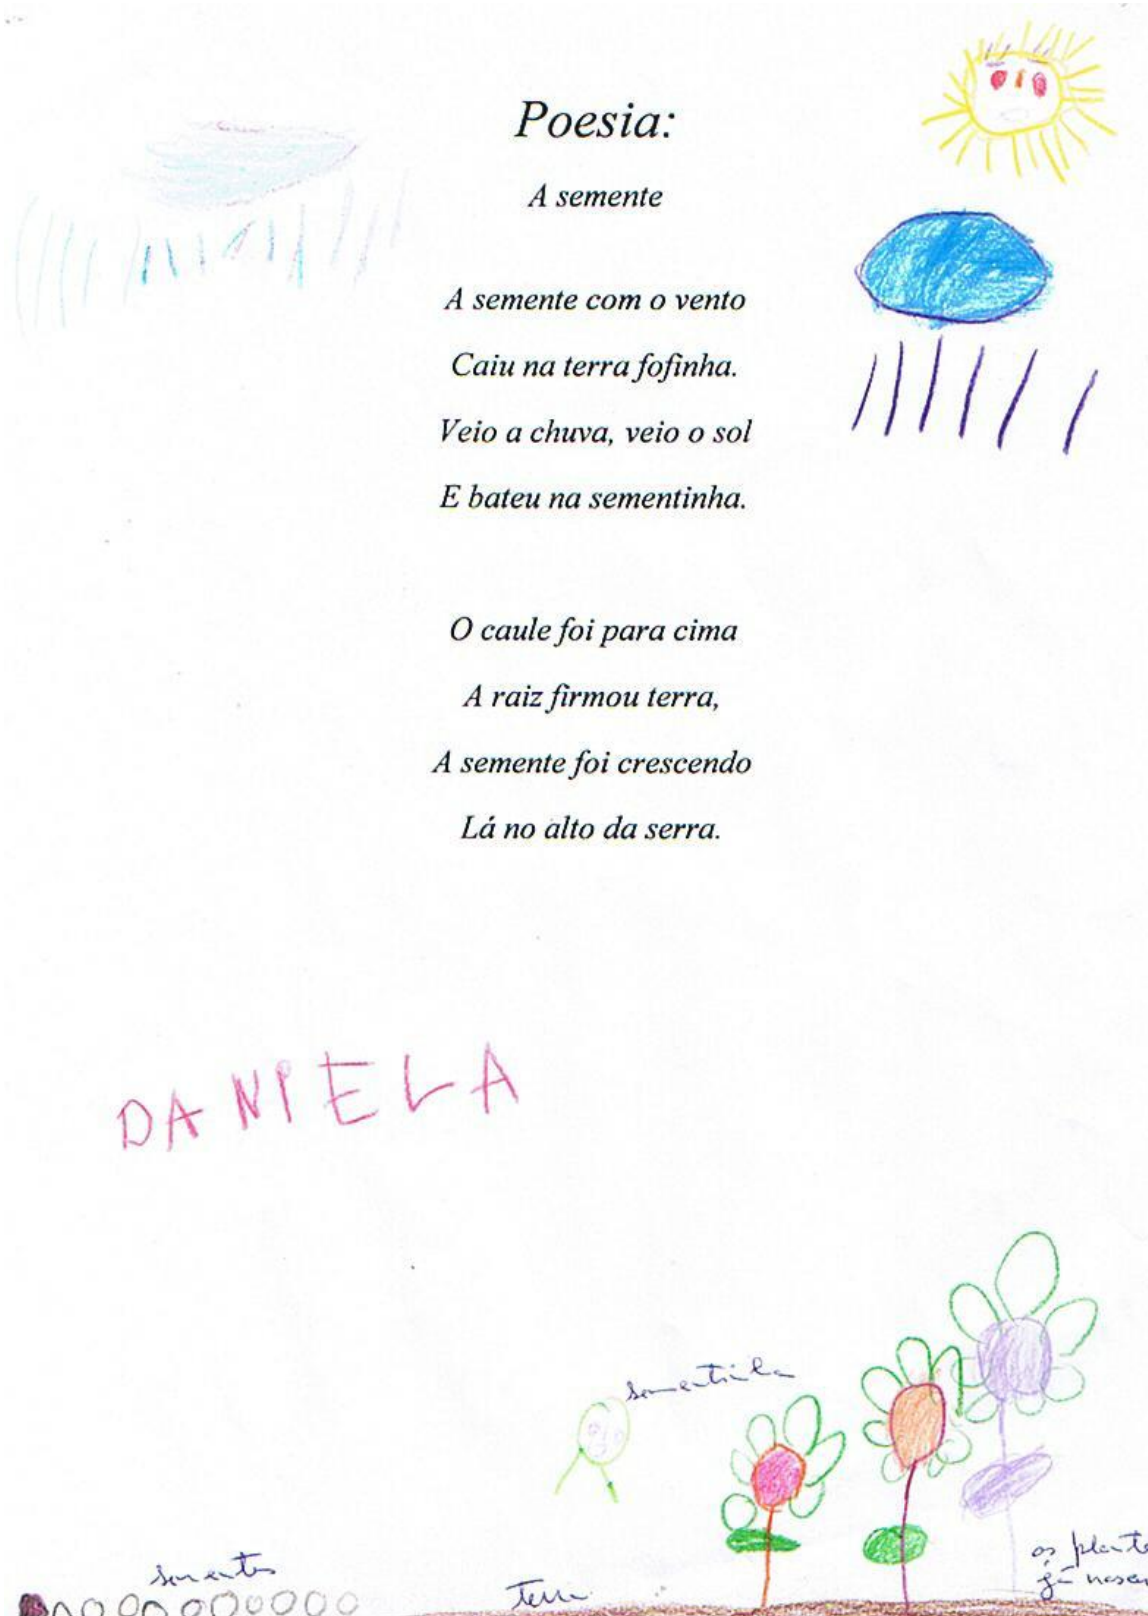 Poesia:
A semente
A semente com o vento
Caiu na terra fofinha.
Veio a chuva, veio o sol
E bateu na sementinha.
O caule foi para cima
A raiz firmou terra,
A semente foi crescendo
Lá no alto da serra.
DANIELA
sementinha
sementes
terra
as plante
já nascer